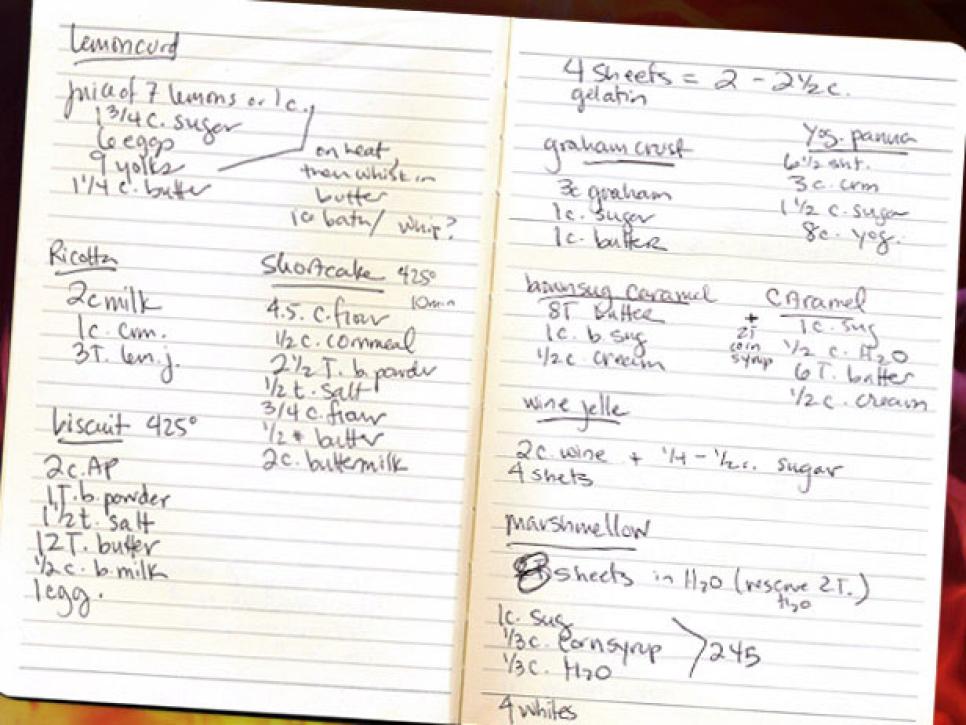 Lemon curd
juice of 7 lemons or 1c.
1 3/4 c. sugar
6 eggs
9 yolks
1 1/4 c. butter
on heat,
then whisk in
butter
ice bath / whip?
Ricotta
2c milk
1c. crm.
3T. lem j.
biscuit 425°
2c. AP
1T. b. powder
1 1/2 t. salt
12T. butter
1/2 c. b. milk
1 egg.
Shortcake 425°
10min
4.5. c. flour
1/2 c. cornmeal
2 1/2 T. b. powder
1/2 t. salt
3/4 c. flour
1/2 # butter
2c. buttermilk
4 sheets = 2 - 2 1/2 c.
gelatin
graham crust
3c graham
1c. sugar
1c. butter
Yog. panna
6 1/2 sht.
3 c. crm
1 1/2 c. sugar
8c. yog.
brown sug caramel
8T butter
1c. b. sug
1/2 c. cream
Caramel
1c. sug
+
2T
corn
syrup
1/2 c. H2O
6 T. butter
1/2 c. cream
wine jelle
2c. wine + 1/4 - 1/2 c. sugar
4 shets
marshmellow
sheets in H2O (reserve 2T.)
H2O
1c. sug
1/3 c. cornsyrup
1/3 c. H2O
245
4 whites